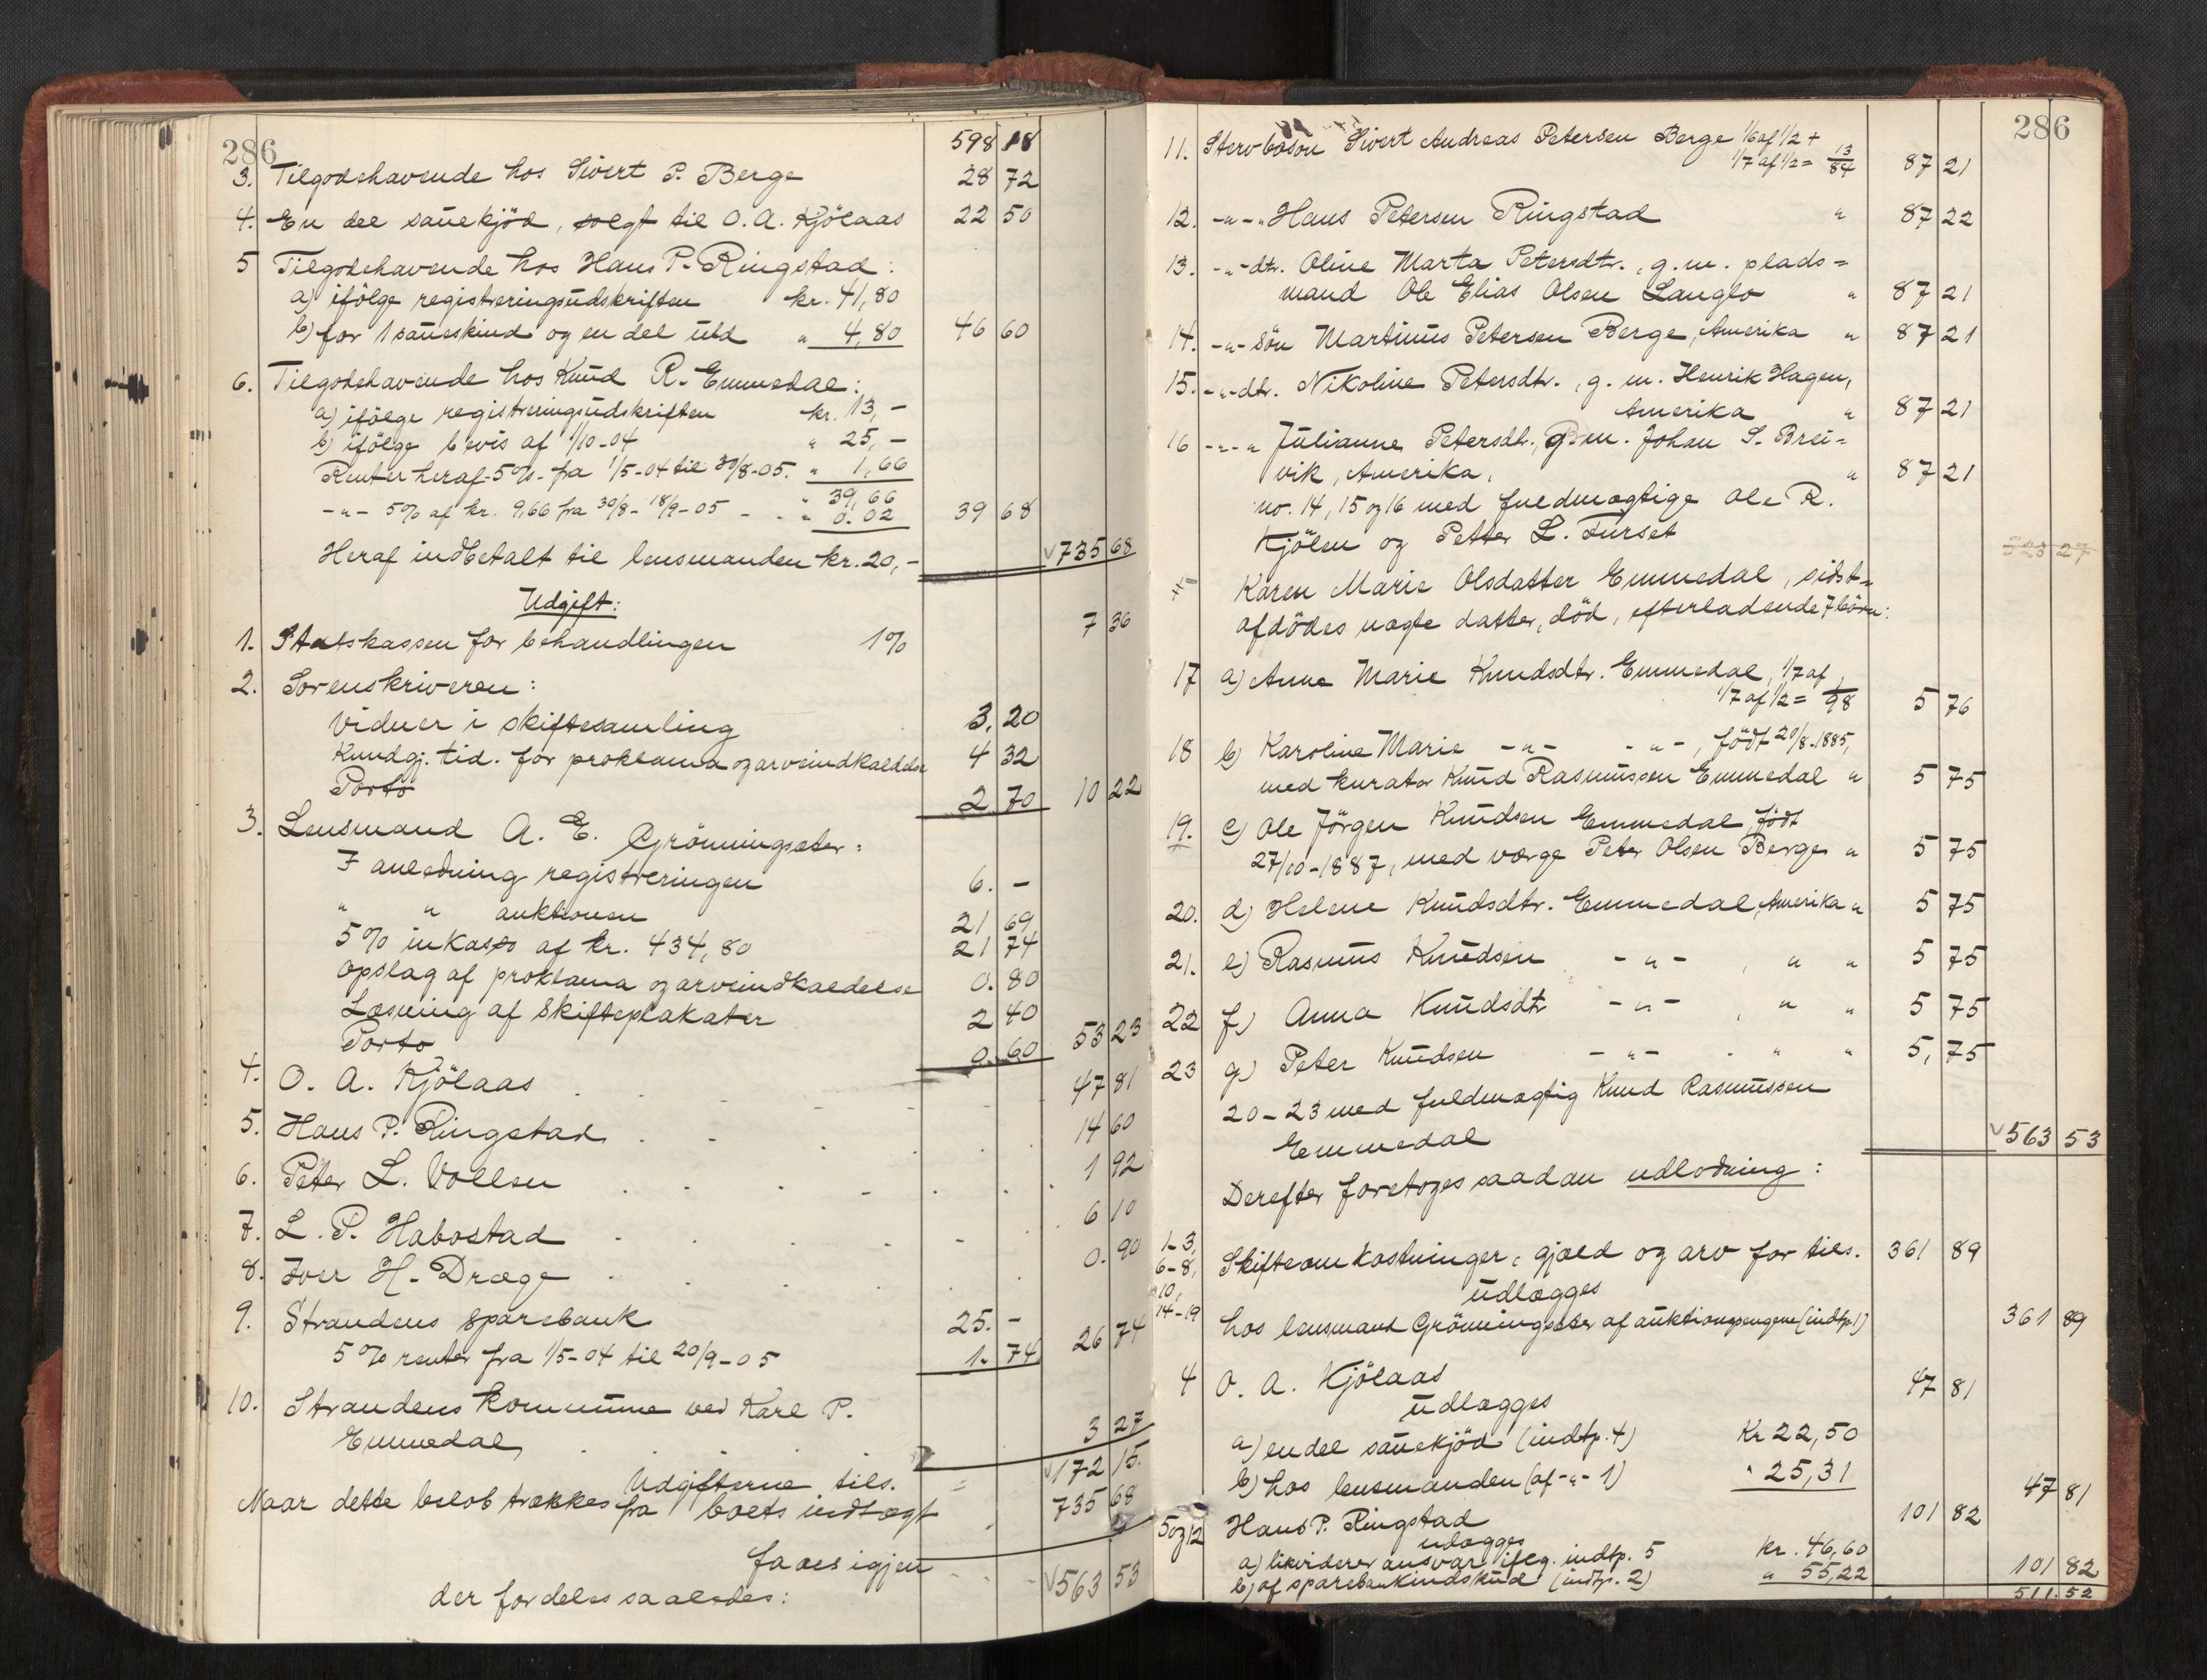 286
598 18
3. Tilgodehavende hos Sivert P. Berge 28 72
4. En del sauekjöd, solgt til O. A. Kjölaas 22 50
5 Tilgodehavende hos Hans P. Ringstad:
a) ifölge registreringsudskriften kr. 41,80
b) for 1 saueskind og en del uld " 4,80 46 60
6. Tilgodehavende hos Knud R. Emmedal:
a) ifölge registreringsudskriften kr. 13,-
b) ifölge bevis af 1/10-04 " 25,-
Renter heraf 5% fra 1/5-04 til 30/8-05. " 1,66
" 39,66
-"- 5% af kr. 9,66 fra 30/8 - 18/9-05 - - " 0.02 39 68
Heraf indbetalt til lensmanden kr. 20,- 735 68
Udgift:
1. Statskassen for behandlingen 1% 7 36
2. Sorenskriveren:
Vidner i skiftesamling 3. 20
Kundgj. tid. for proklama og arveindkaldelse 4 32
Porto 2 70 10 22
3. Lensmand A. E. Grönningsæter:
I anledning registreringen 6. -
" " auktionen 21 69
5% inkasso af kr. 434,80 21 74
Opslag af proklama og arveindkaldelse 0. 80
Læsning af skifteplakater 2 40
Porto 0. 60 53 23
4. O. A. Kjölaas 47 81
5. Hans P. Ringstad 14 60
6. Peter L. Vollen 1 92
7. L. P. Habostad 6 10
8. Iver H. Dræge 0. 90
9. Strandens sparebank 25. -
5% renter fra 1/5-04 til 20/9-05 1. 74 26 74
10. Strandens kommune ved Karl P.
Emmedal, 3 27
Udgifterne tils. = 172 15
Naar dette belöb trækkes fra boets indtægt 735 68
faaes igjen 563 53
der fordeles saaledes:
286
11. Stervbosön Sivert Andreas Petersen Berge 1/6 af 1/2 +
1/7 af 1/2 = 13/84 87 21
12. -"-"- Hans Petersen Ringstad " 87 22
13. -"- dtr. Oline Marta Petersdtr., g. m. plads=
mand Ole Elias Olsen Langlo " 87 21
14. -"- sön Martinus Petersen Berge, Amerika " 87 21
15. -"- dtr. Nikoline Petersdtr., g. m. Henrik Hagen,
Amerika " 87 21
16 -"-" Julianne Petersdt., g. m. Johan S. Brei=
vik, Amerika. " 87 21
no. 14, 15 og 16 med fuldmægtige Ole R.
Kjölen og Petter L. Furset 523 27
Karen Marie Olsdatter Emmedal, sidst=
afdödes ægte datter, död, efterladende 7 börn:
17 a) Anne Marie Knudsdtr. Emmedal, 1/7 af
1/7 af 1/2 = 1/98 5 76
18 b) Karoline Marie -"- -"-, födt 20/8-1885,
med kurator Knud Rasmussen Emmedal " 5 75
19. c) Ole Jörgen Knudsen Emmedal, födt
27/10-1887, med værge Peter Olsen Berge " 5 75
20. d) Helene Knudsdtr. Emmedal, Amerika " 5 75
21. e) Rasmus Knudsen -"- , " " 5 75
22 f) Anna Knudsdtr -"- , " " 5 75
23 g) Peter Knudsen -"- . " " 5, 75
20-23 med fuldmægtig Knud Rasmussen
Emmedal 563 53
Derefter foretoges saadan udlodning:
1-3,
6-8,
10,
14-19
Skifteomkostninger, gjæld og arv for tils. 361 89
udlægges
hos lensmand Grönningsæter af auktionspengene (indtp. 1) 361 89
4 O. A. Kjölaas 47 81
udlægges
a) en del sauekjöd (indtp. 4) Kr 22,50
b) hos lensmanden (af -"- 1) " 25,31 47 81
5 og 12 Hans P. Ringstad 101 82
udlægges
a) likviderer ansvar ifög. indtp. 5 kr. 46,60
b) af sparebankindskud (indtp. 2) " 55,22 101 82
511. 52